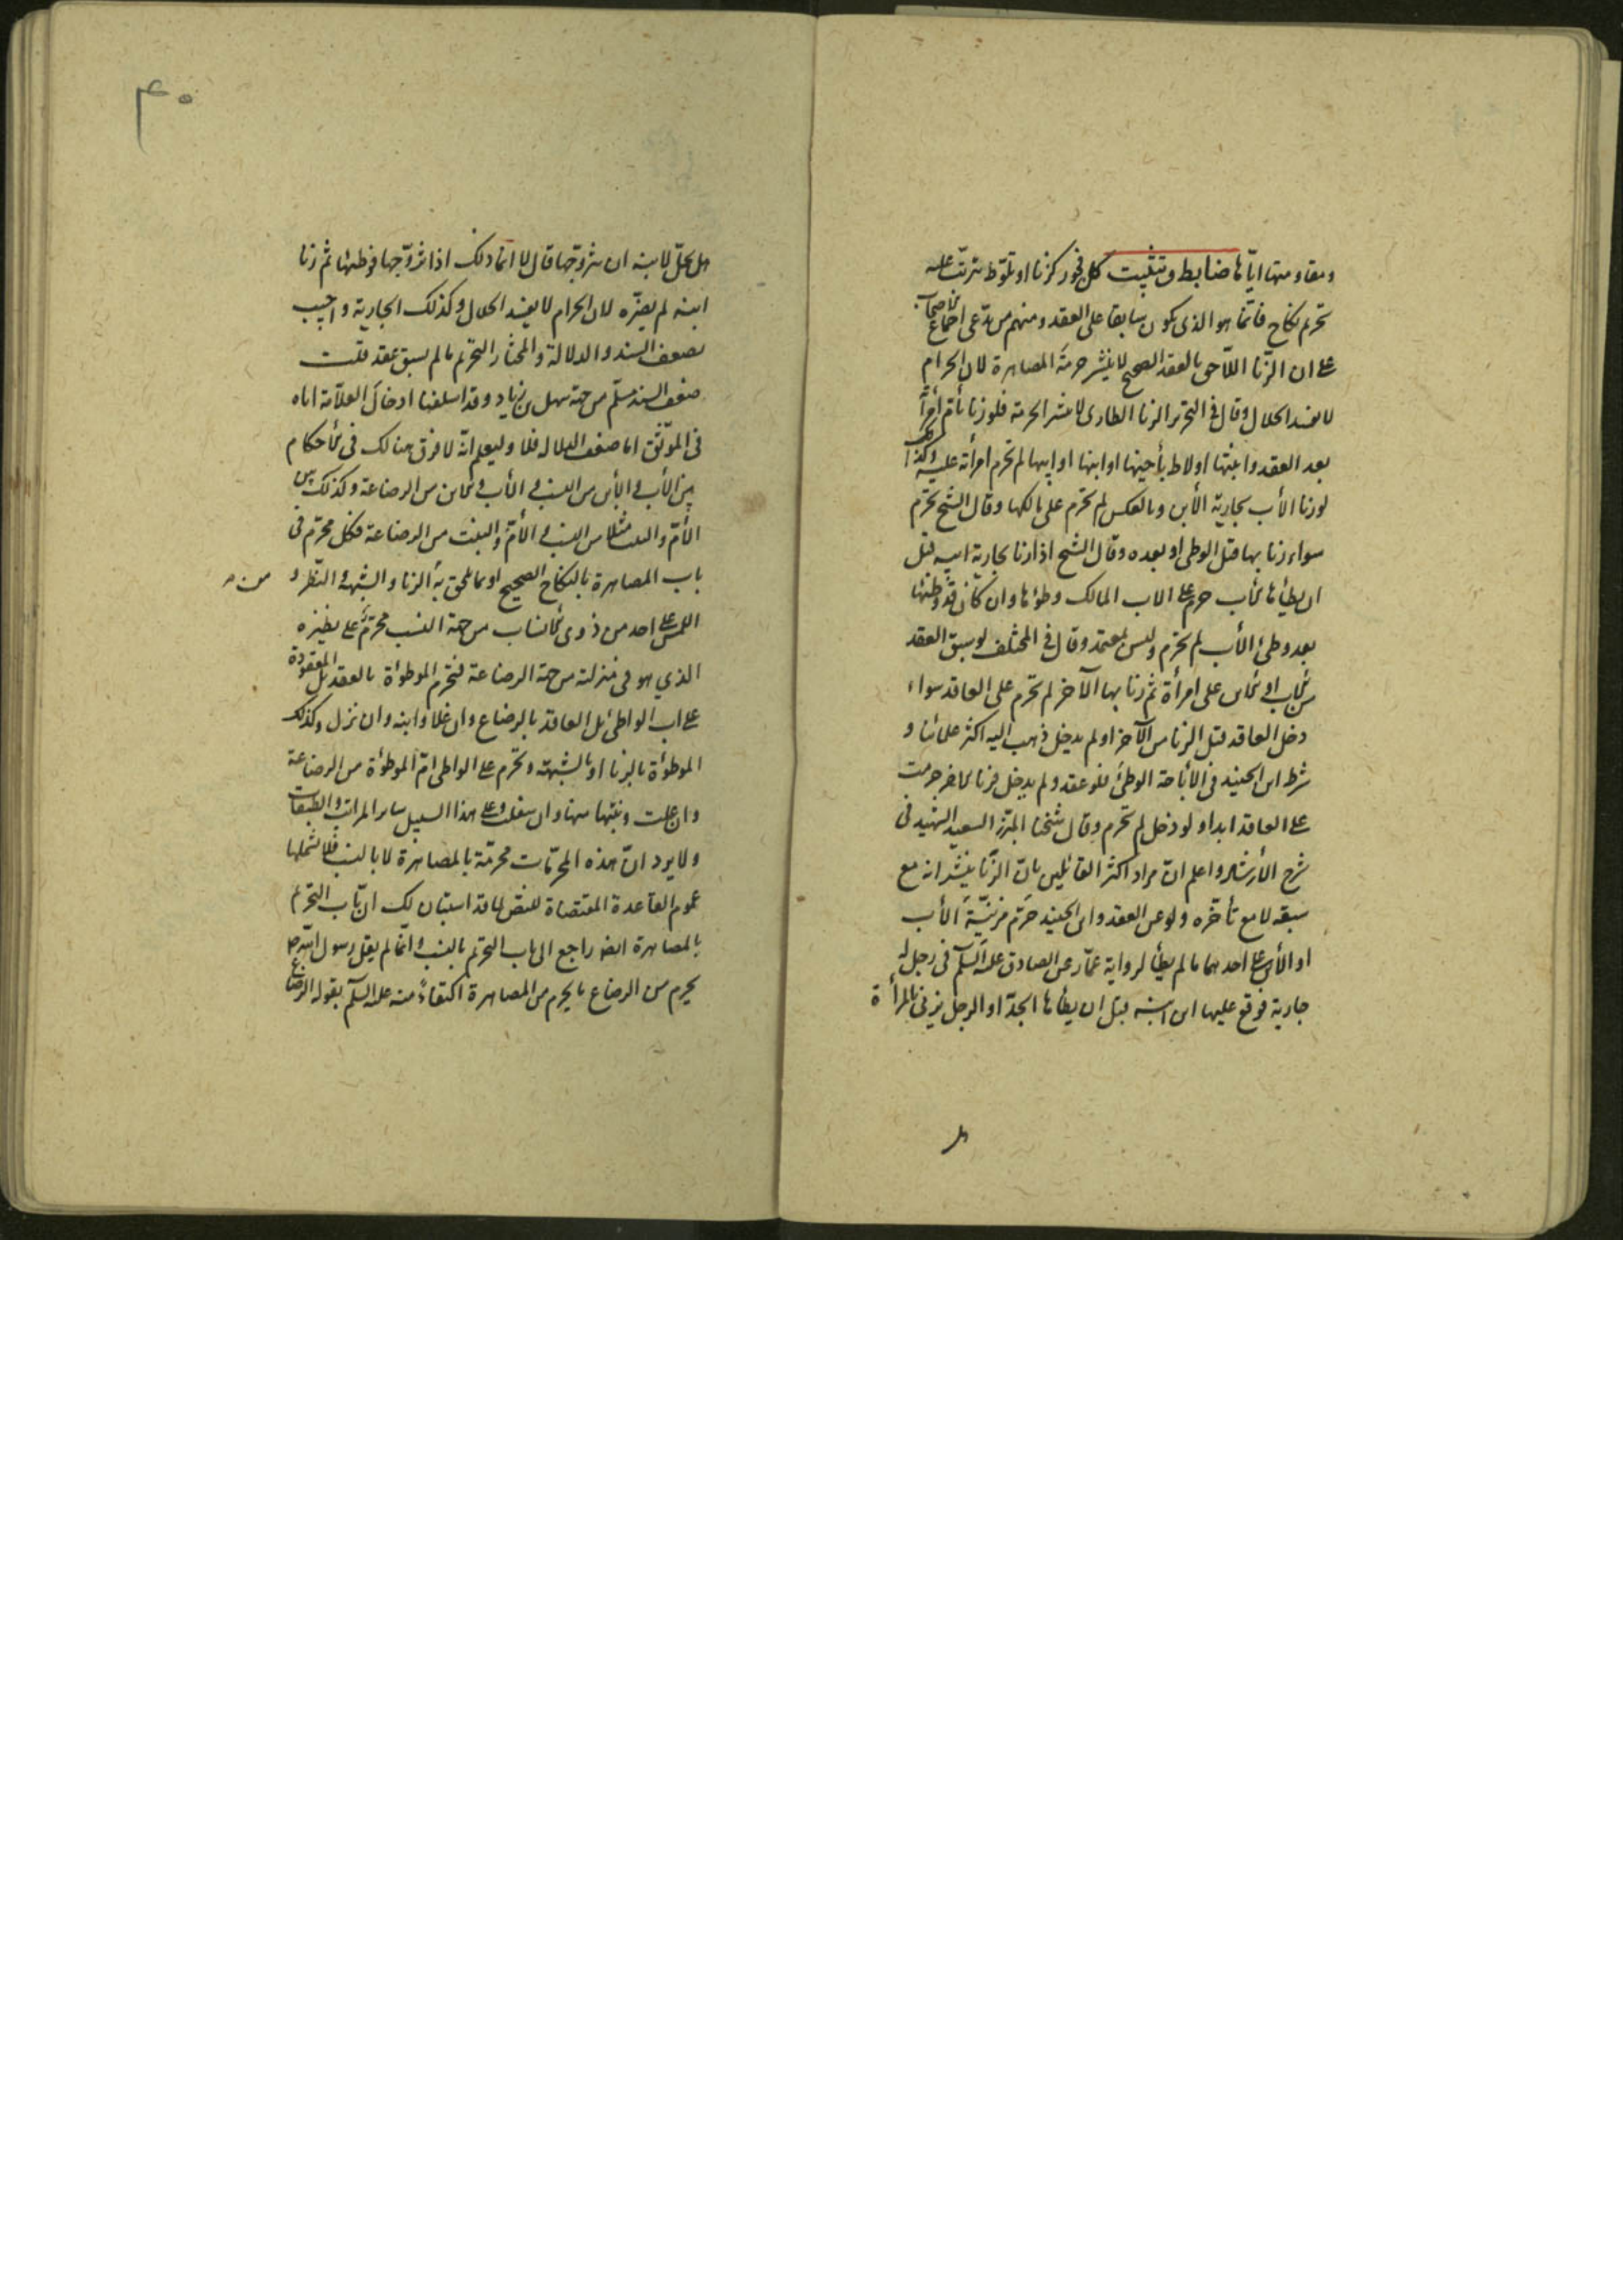 ومقاومتها ايّاها ضابط وتثبيت كل فجور كزنا او تلوّط يترتّب عليه
تحريم نكاح فانّما هو الذى يكون سابقا على العقد ومنهم من يدّعى اجماع الاصحاب
على ان الزّنا اللّاحق بالعقد الصحيح لا ينشر حرمة المصاهرة لان الحرام
لا يفسد الحلال وقال فى التحرير الزنا الطارى لا ينشر الحرمة فلو زنا بأم امرأته
بعد العقد وابنتها او لاط بأخيها او ابنها او ابيها لم تحرم امرأته عليه وكذلك
لو زنا الأب بجارية الأبن وبالعكس لم تحرم على مالكها وقال الشيخ تحرّم
سواء زنا بها قبل الوطى او بعده وقال الشيخ اذا زنا بجارية ابيه قبل
ان يطيأها الأب حرم على الاب المالك وطؤها وان كان قد وطئها
بعد وطئ الأب لم تحرم وليس بمعتمد وقال فى المختلف لو سبق العقد
من الأب او الابن على امرأة ثم زنا بها الآخر لم تحرم على العاقد سواء
دخل العاقد قبل الزنا من الآخر او لم يدخل ذهب اليه اكثر علمائنا و
شرط ابن الجنيد فى الأباحة الوطئ فلو عقد ولم يدخل فزنا الآخر حرمت
على العاقد ابدا ولو دخل لم تحرم وقال شيخنا المبرّز السعيد الشهيد فى
شرح الأرشاد واعلم انّ مراد اكثر القائلين بانّ الزّنا ينشر انه مع
سبقه لا مع تأخّره ولو عن العقد وابن الجنيد حرّم مزنيّة الأب
او الأبن على احدهما ما لم يطأ لرواية عمّار عن الصادق عليه السّلم فى رجل له
جارية فوقع عليها ابن ابنه قبل ان يطأها الجدّ او الرجل يزنى بالمرأة
هل
٤٠
هل يحلّ لابنه ان يتزوّجها قال لا انّما ذلك اذا تزوّجها فوطئها ثم زنا
ابنه لم يضرّه لان الحرام لا يفسد الحلال وكذلك الجارية واجيب
بضعف السند والدلالة والمختار التحريم ما لم يسبق عقد قلت
ضعف السند مسلّم من جهة سهل بن زياد وقد اسلفنا ادخال العلّامة اياه
فى الموثّق اما ضعف الدلالة فلا وليعلم انّه لا فرق هنالك فى الأحكام
بين الأب والأبن من النسب والأب والابن من الرضاعة وكذلك بين
الأمّ والبنت مثلا من النسب والأمّ والبنت من الرضاعة فكل محرّم فى
باب المصاهرة بالنكاح الصحيح او ما يلحق به الزنا والشبهة والنّظر و
اللمس على احد من ذوى الانساب من جهة النسب محرّم على نظيره
الذي هو فى منزلته من جهة الرضاعة فتحرم الموطؤة بالعقد بل المعقودة
على اب الواطئ بل العاقد بالرضاع وان علا وابنه وان نزل وكذلك
الموطؤة بالزنا او بالشبهة وتحرم على الواطى امّ الموطؤة من الرضاعة
وان علت وبنتها منها وان سفلت وعلى هذا السبيل ساير المراتب والطبقات
ولا يرد انّ هذه المحرّمات محرّمة بالمصاهرة لا بالنسب فلا تشملها
عموم القاعدة المقتضاة للنص لما قد استبان لك ان باب التحريم
بالمصاهرة ايضا راجع الى باب التحريم بالنسب وانّما لم يقل رسول الله ص
يحرم من الرضاع ما يحرم من المصاهرة اكتفاءً منه عليه السّلم بقوله الرضاع